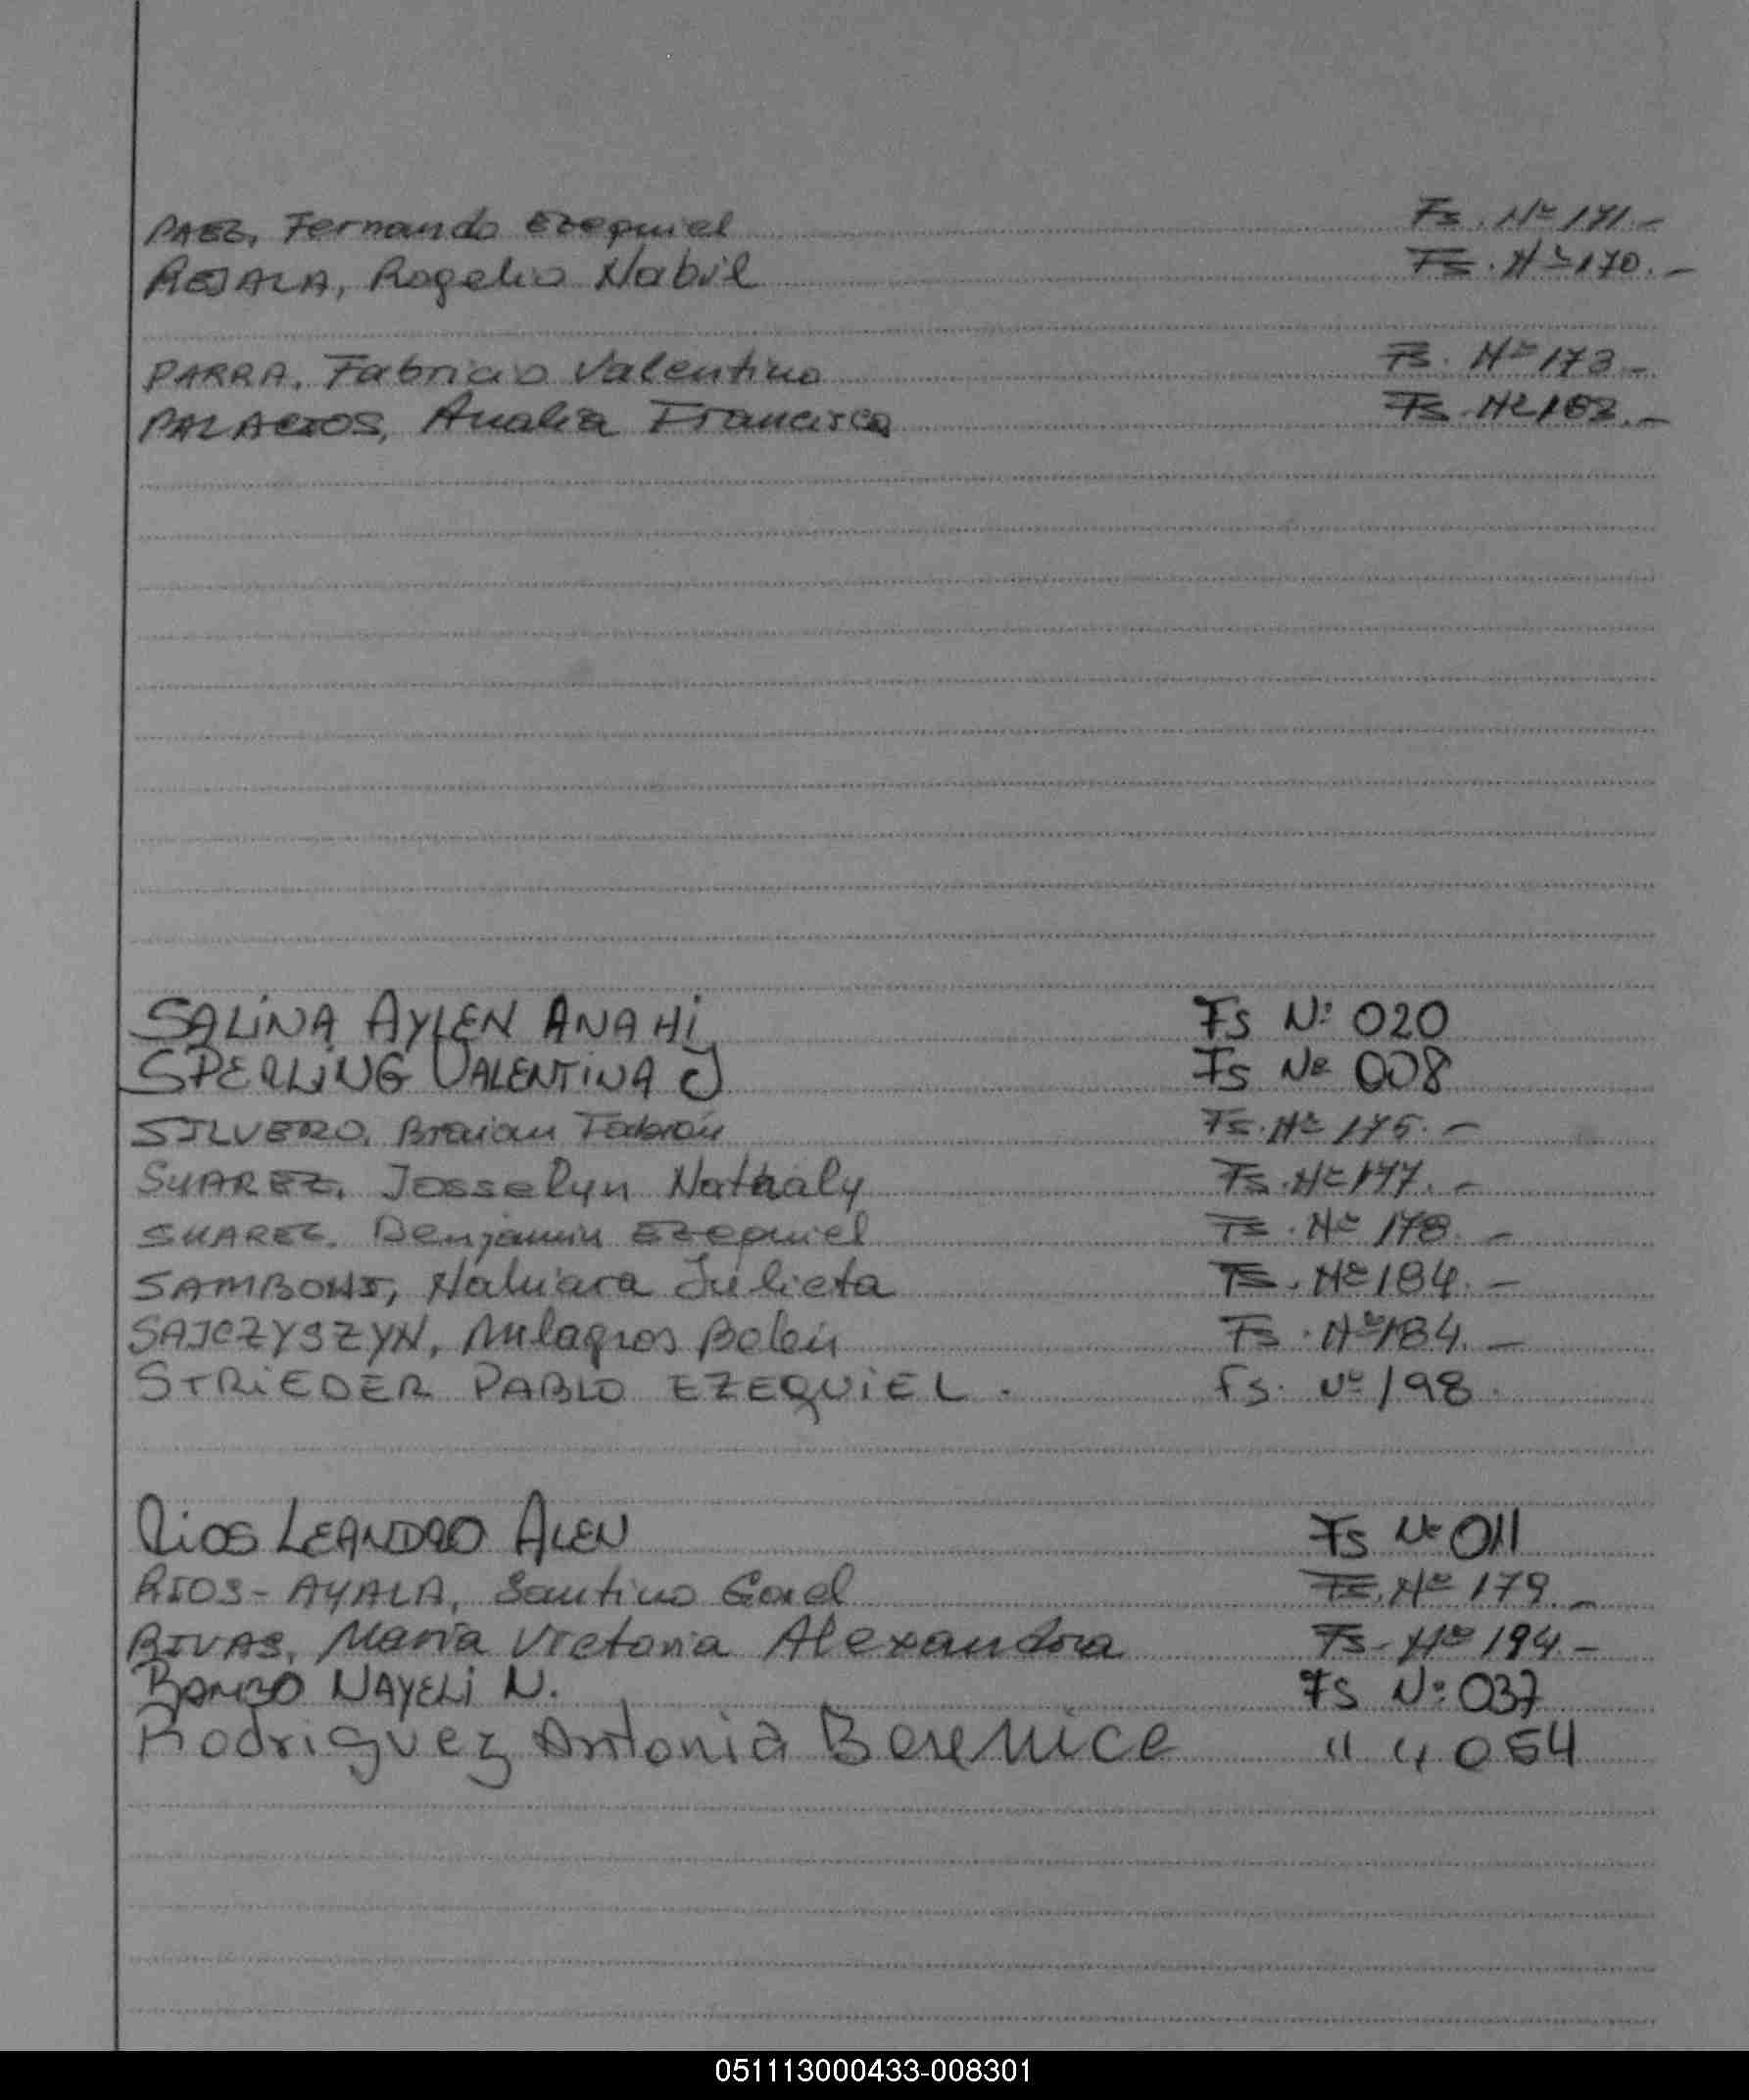 PAEZ, Fernando Ezequiel Fs. Nº 171.-
REJALA, Rogelio Nabil Fs. Nº 170.-
PARRA, Fabricio Valentino Fs. Nº 173.-
PALACIOS, Analia Francisca Fs. Nº
SALINA AYLEN ANAHI Fs Nº 020
SPERLING VALENTINA J Fs Nº 008
SILVERO, Braian Fabián Fs. Nº 175.-
SUAREZ, Josselyn Nathaly Fs. Nº 177.-
SUAREZ, Benjamin Ezequiel Fs. Nº 178.-
SAMBONI, Nahiara Julieta Fs. Nº 184.-
SAJCZYSZYN, Milagros Belén Fs. Nº 184.-
STRIEDER PABLO EZEQUIEL. Fs. Nº 198.
Rios LEANDRO ALEN Fs Nº 011
RIOS-AYALA, Santino Fs. Nº 179.-
RIVAS, María Victoria Alexandra Fs. Nº 194.-
NAYELI N. Fs Nº 037
Rodriguez Antonia Berenice " " 054
051113000433-008301